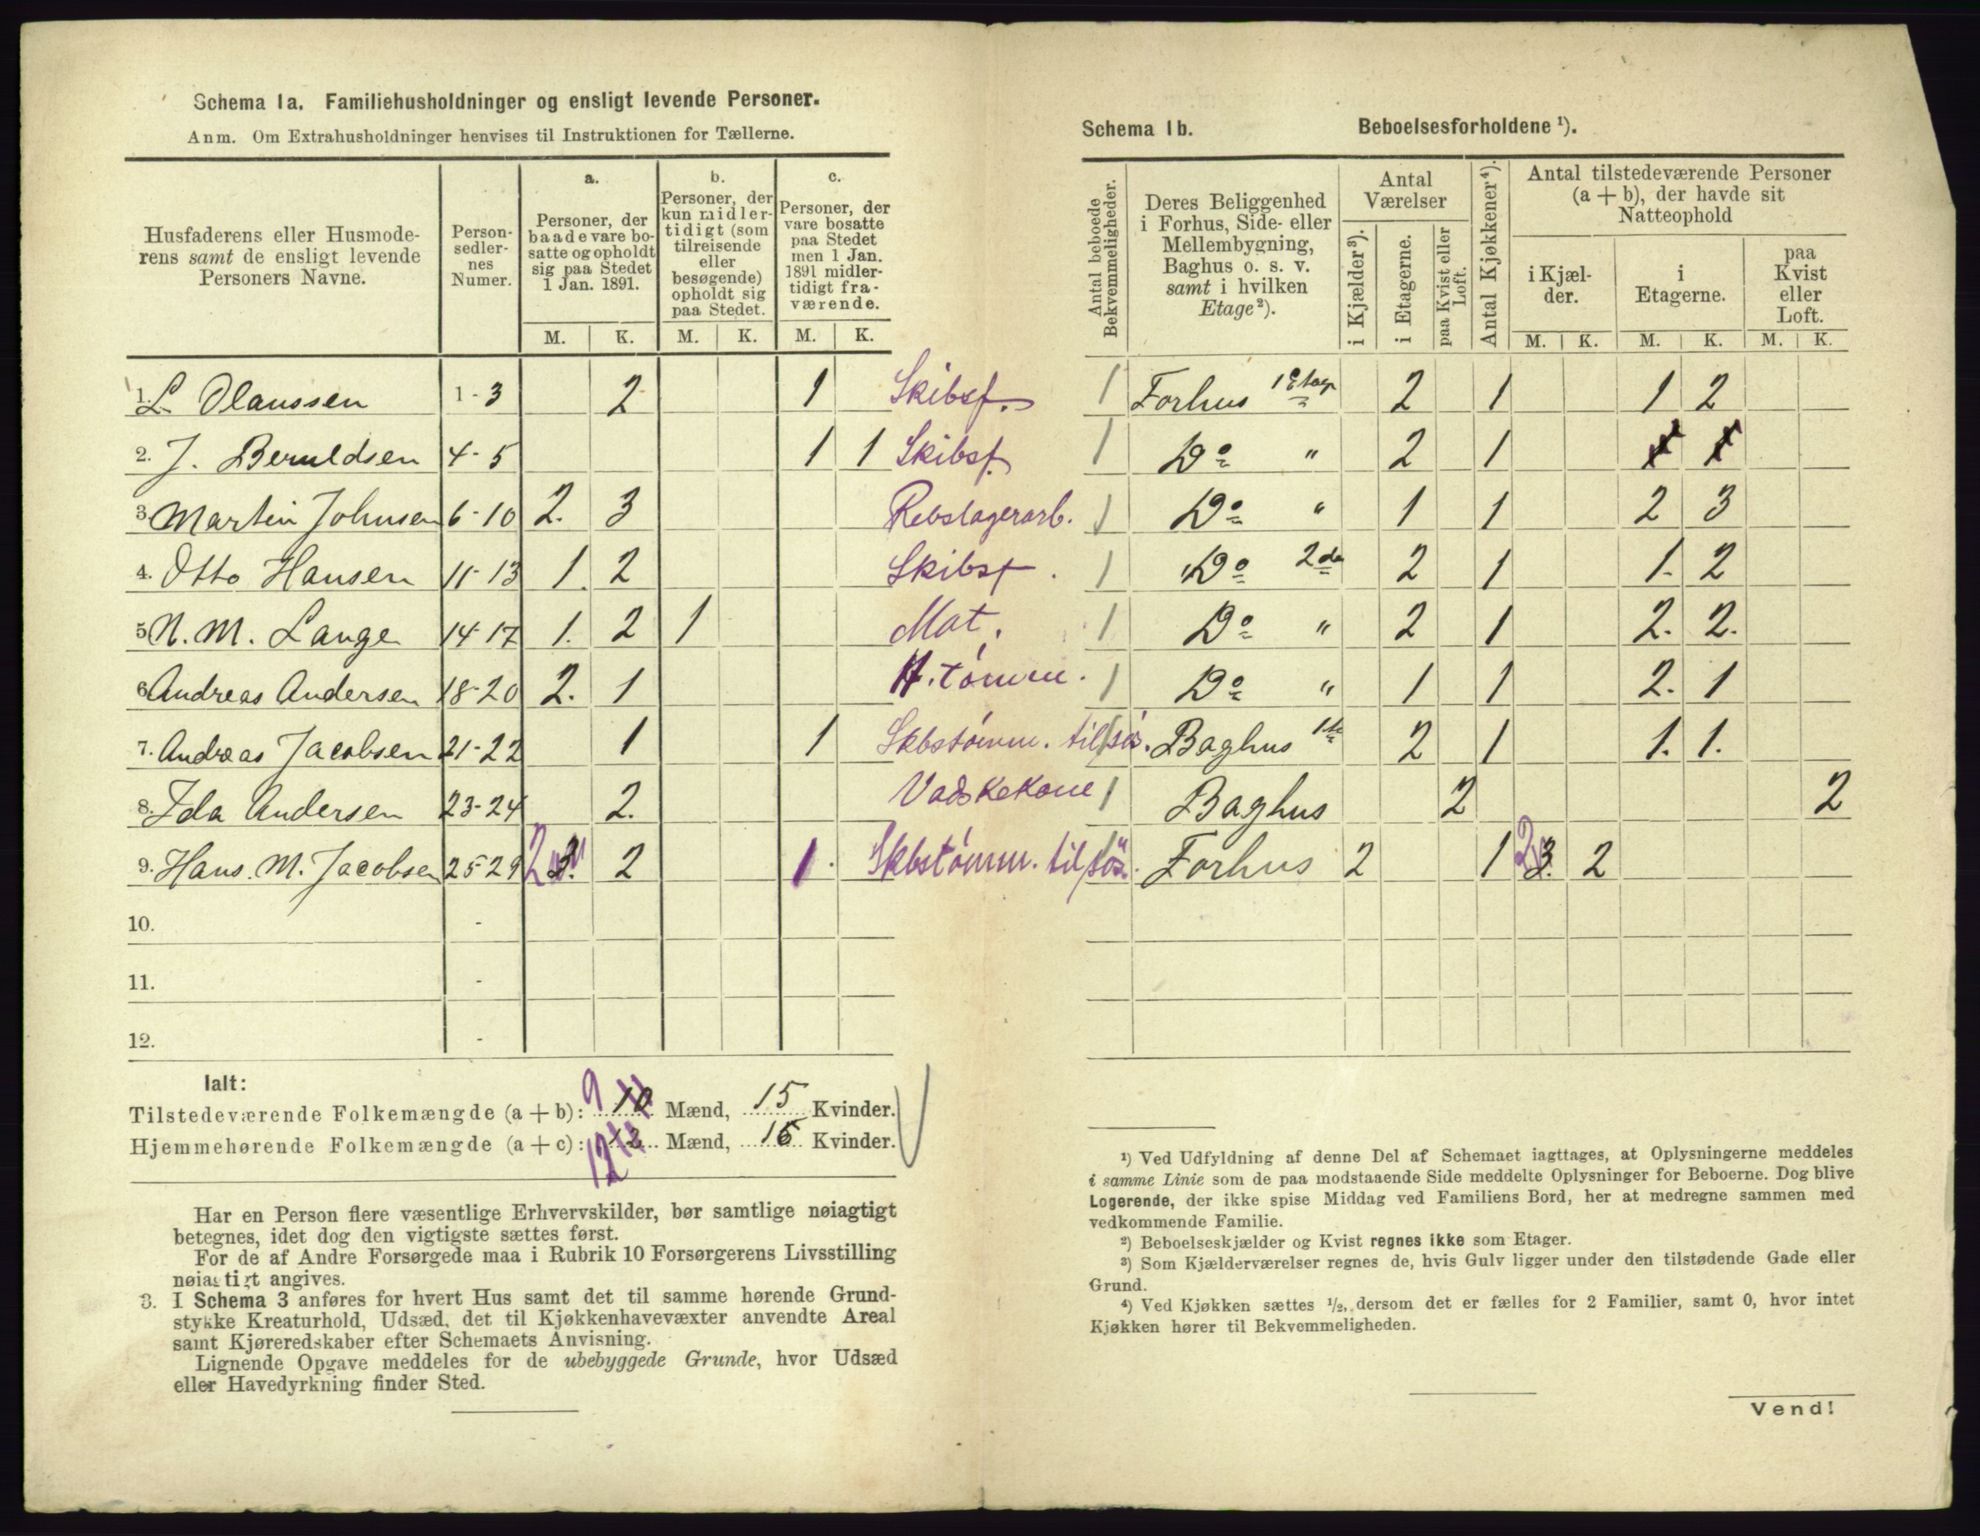 Schema 1a. Familiehusholdninger og ensligt levende Personer.
Anm. Om Extrahusholdninger henvises til Instruktionen for Tællerne.
Husfaderens eller Husmoderens samt de ensligt levende Personers Navne.
Personsedlernes Numer.
a. Personer, der baade vare bosatte og opholdt sig paa Stedet 1 Jan. 1891.
b. Personer, der kun midlertidigt (som tilreisende eller besøgende) opholdt sig paa Stedet.
c. Personer, der vare bosatte paa Stedet men 1 Jan. 1891 midlertidigt fraværende.
M. K. M. K. M. K.
1. L. Olaussen 1-3 2 1 Skibsf.
2. J. Beruldsen 4-5 1 1 Skibsf.
3. Martin Johnsen 6-10 2. 3 Rebslagerarb.
4. Otto Hansen 11-13 1. 2 Skibsf.
5. N. M. Lange 14-17 1. 2 1 Mat.
6. Andreas Andersen 18-20 2. 1 H. tømm.
7. Andreas Jacobsen 21-22 1 1 Skbstømm. tilsøs.
8. Ida Andersen 23-24 2. Vadskekone
9. Hans. M. Jacobsen 25-29 2 3. 2 1. Skbstømm. tilsøs.
10. -
11. -
12. -
Ialt:
Tilstedeværende Folkemængde (a + b): 9 10 Mænd, 15 Kvinder.
Hjemmehørende Folkemængde (a + c): 12 12 Mænd, 16 Kvinder.
Har en Person flere væsentlige Erhvervskilder, bør samtlige nøiagtigt
betegnes, idet dog den vigtigste sættes først.
For de af Andre Forsørgede maa i Rubrik 10 Forsørgerens Livsstilling
nøiagtigt angives.
3. I Schema 3 anføres for hvert Hus samt det til samme hørende Grund-
stykke Kreaturhold, Udsæd, det til Kjøkkenhavevæxter anvendte Areal
samt Kjøreredskaber efter Schemaets Anvisning.
Lignende Opgave meddeles for de ubebyggede Grunde, hvor Udsæd
eller Havedyrkning finder Sted.
Schema 1b. Beboelsesforholdene ¹).
Antal beboede Bekvemmeligheder.
Deres Beliggenhed i Forhus, Side- eller Mellembygning, Baghus o. s. v. samt i hvilken Etage²).
Antal Værelser
i Kjælder³).
i Etagerne.
paa Kvist eller Loft.
Antal Kjøkkener⁴).
Antal tilstedeværende Personer (a + b), der havde sit Natteophold
i Kjælder.
i Etagerne.
paa Kvist eller Loft.
M. K. M. K. M. K.
1 Forhus 1 Etage 2 1 1 2
1 Do " 2 1
1 Do " 1 1 2 3
1 Do 2de 2 1 1. 2
1 Do " 2 1 2. 2.
1 Do " 1 1 2. 1
1 Baghus 1te 2 1 1. 1.
1 Baghus 2 2
1 Forhus 2 1 2 3. 2
¹) Ved Udfyldning af denne Del af Schemaet iagttages, at Oplysningerne meddeles
i samme Linie som de paa modstaaende Side meddelte Oplysninger for Beboerne. Dog blive
Logerende, der ikke spise Middag ved Familiens Bord, her at medregne sammen med
vedkommende Familie.
²) Beboelseskjælder og Kvist regnes ikke som Etager.
³) Som Kjælderværelser regnes de, hvis Gulv ligger under den tilstødende Gade eller
Grund.
⁴) Ved Kjøkken sættes ½, dersom det er fælles for 2 Familier, samt 0, hvor intet
Kjøkken hører til Bekvemmeligheden.
Vend!